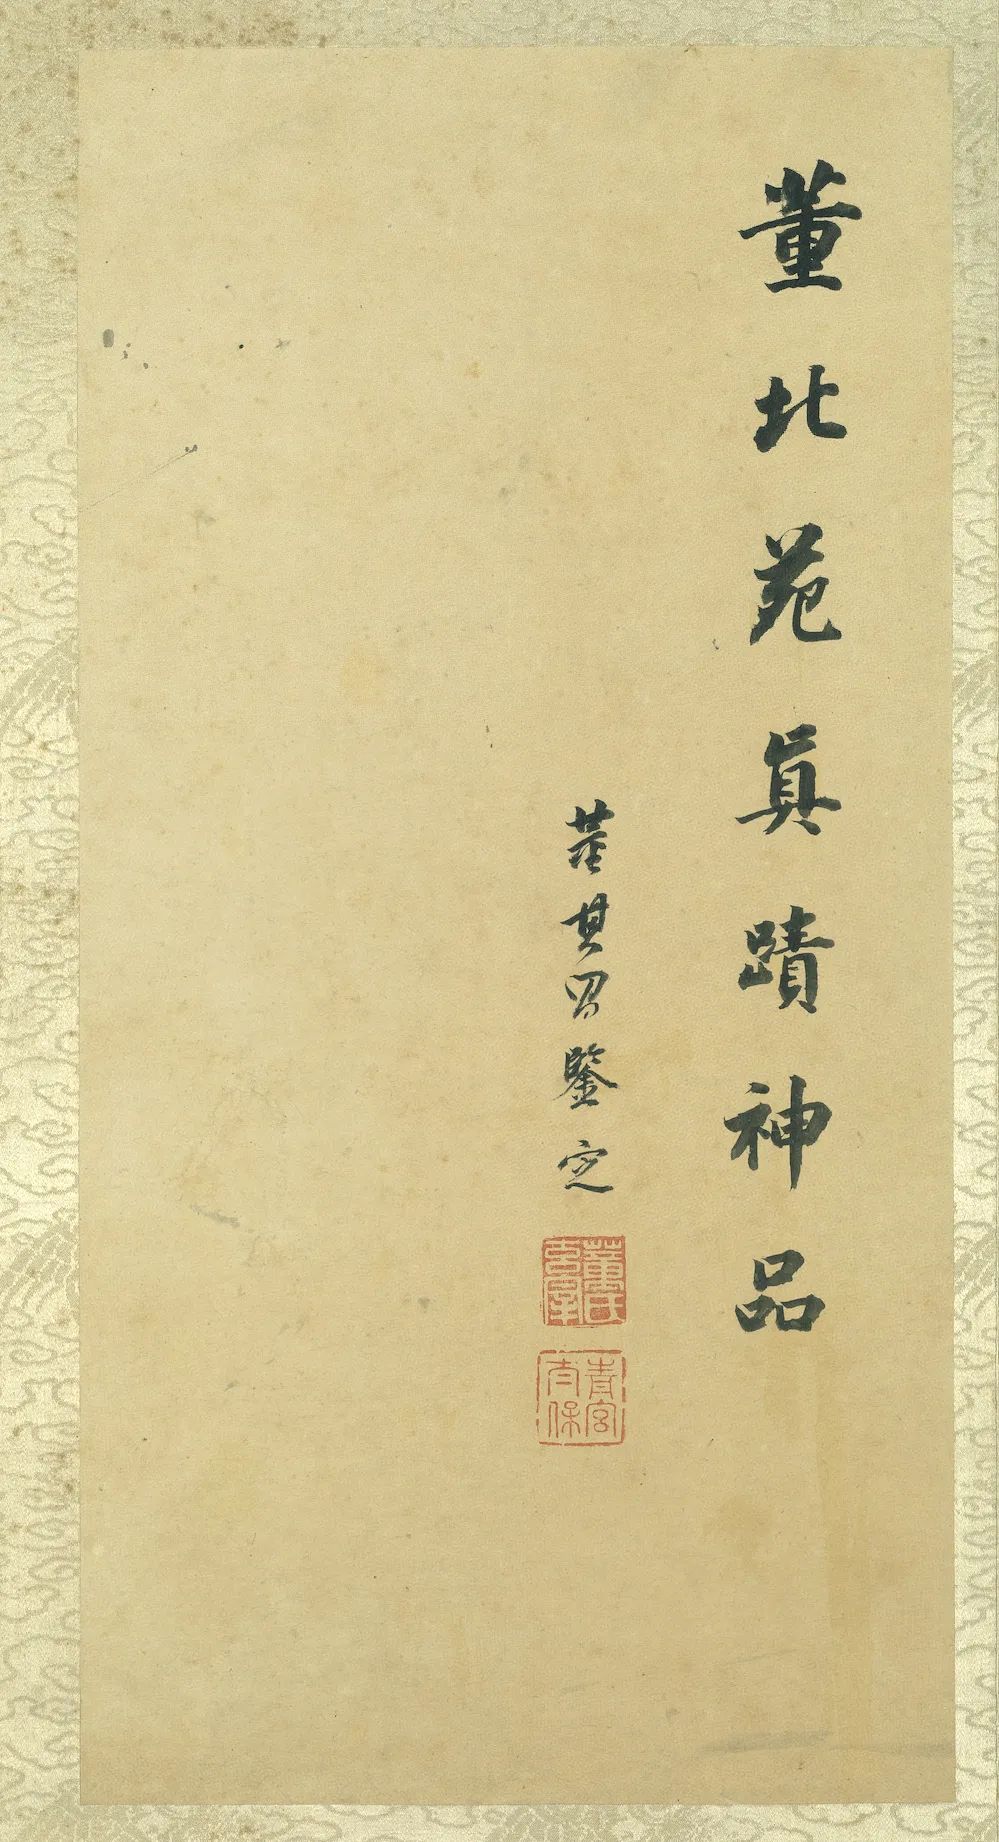 董北苑眞蹟神品
董其昌鑒定
董氏
玄宰
青宮
太保